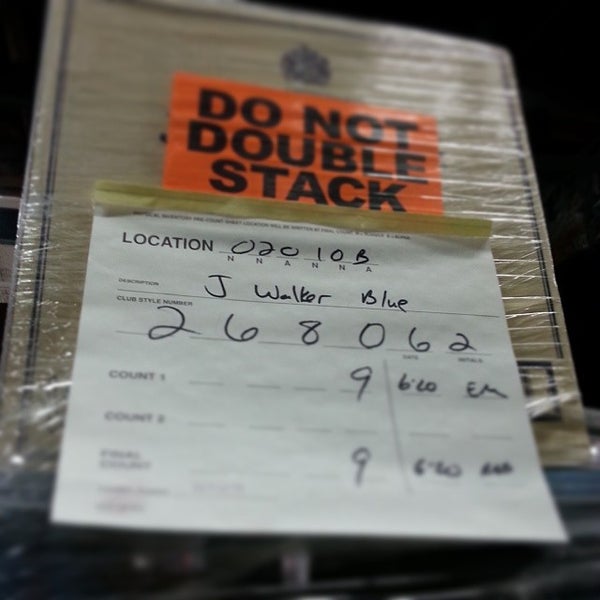 DO NOT
DOUBLE
STACK
LOCATION 02010B
N N A N N A
DESCRIPTION J Walker Blue
CLUB STYLE NUMBER
268062
DATE INITIALS
COUNT 1 9 6-20 EM
COUNT 2
FINAL COUNT 9 6-20